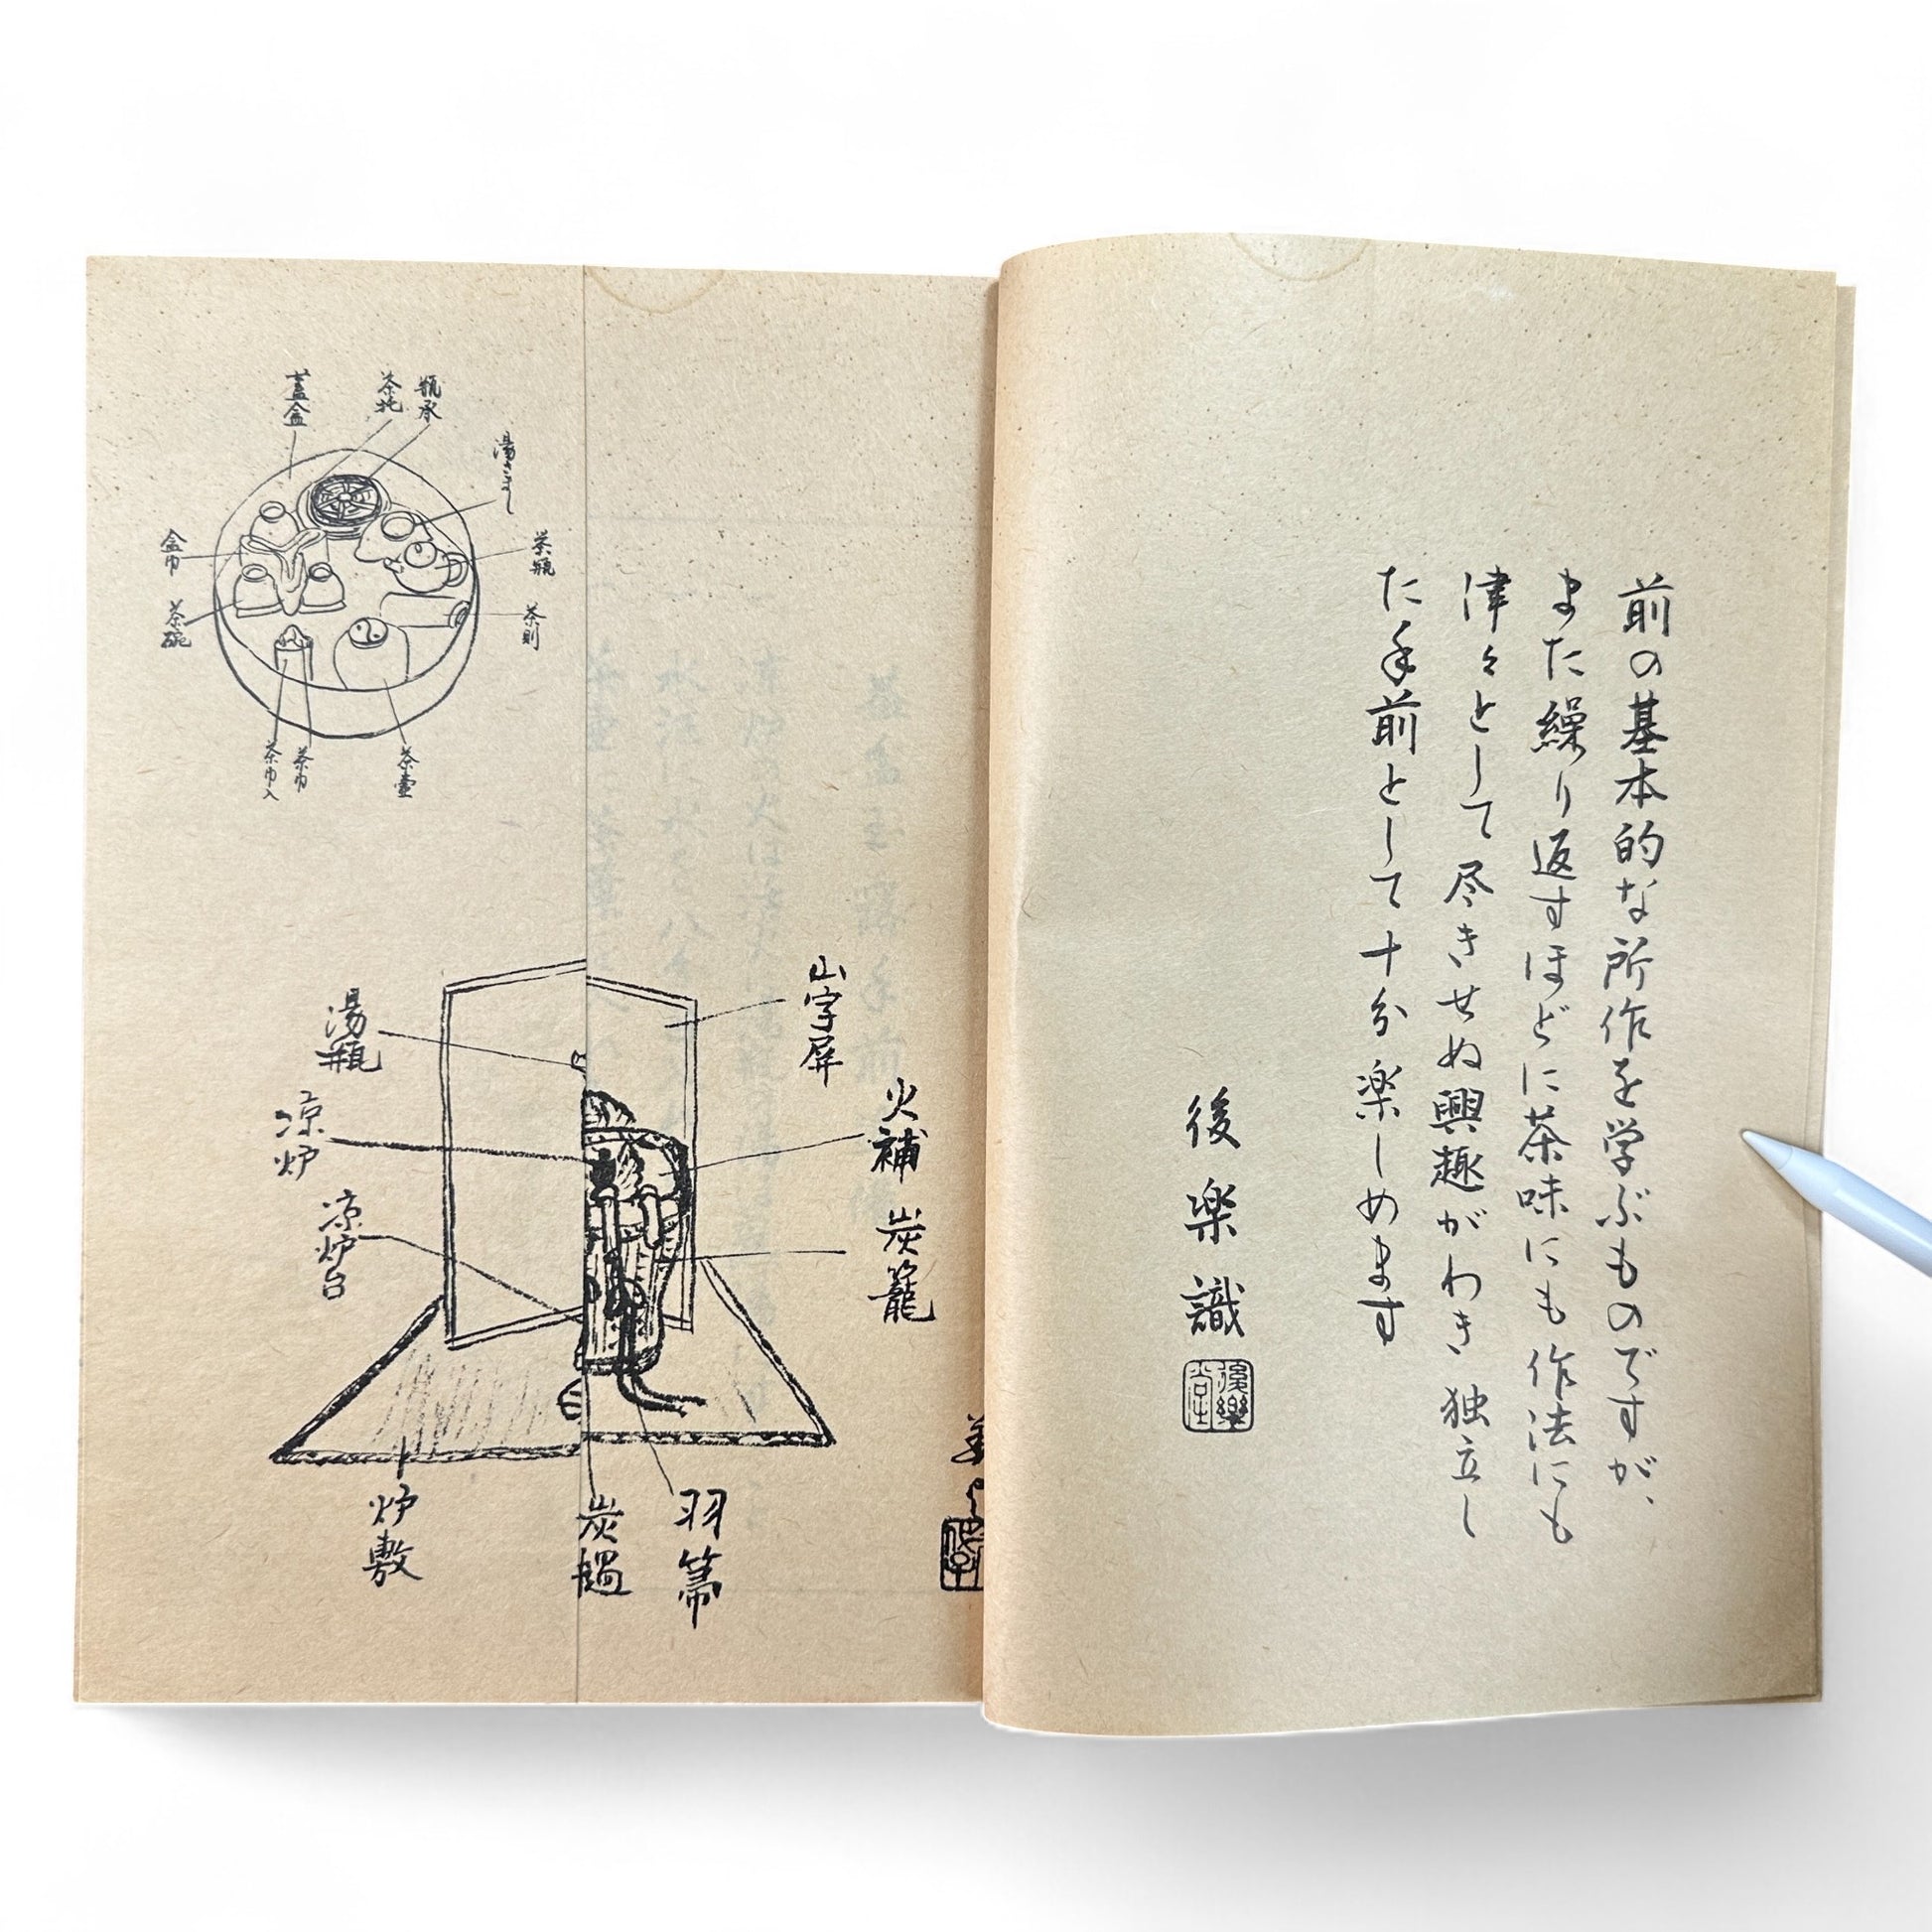 前の基本的な所作を学ぶものですが、
また繰り返すほどに茶味にも作法にも
津々として尽きせぬ興趣がわき独立し
た手前として十分楽しめます
後楽識
後樂堂
瓶承
茶托
蓋盒
湯さまし
茶瓶
茶則
盒巾
茶碗
茶壷
茶巾
茶巾入
山字屏
火補
炭籠
湯瓶
凉炉
凉炉台
羽箒
炭檛
炉敷